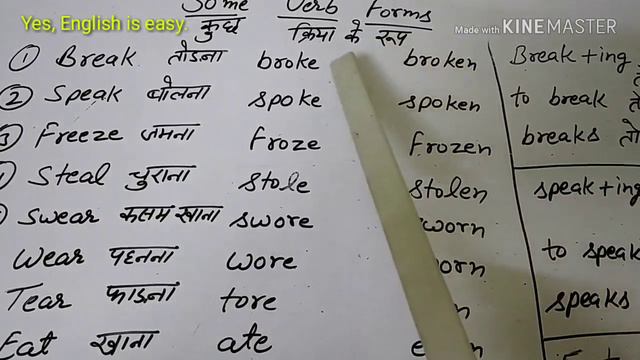 Yes, English is easy.
Made with KINEMASTER
Some Verb Forms
कुछ क्रिया के रूप
① Break तोडना broke broken Break+ing
② Speak बोलना spoke spoken to break
③ Freeze जमना Froze Frozen breaks
Steal चुराना stole stolen speak+ing
Swear कसम खाना swore worn
Wear पहनना wore orn to speak
Tear फाडना tore speaks
Eat खाना ate